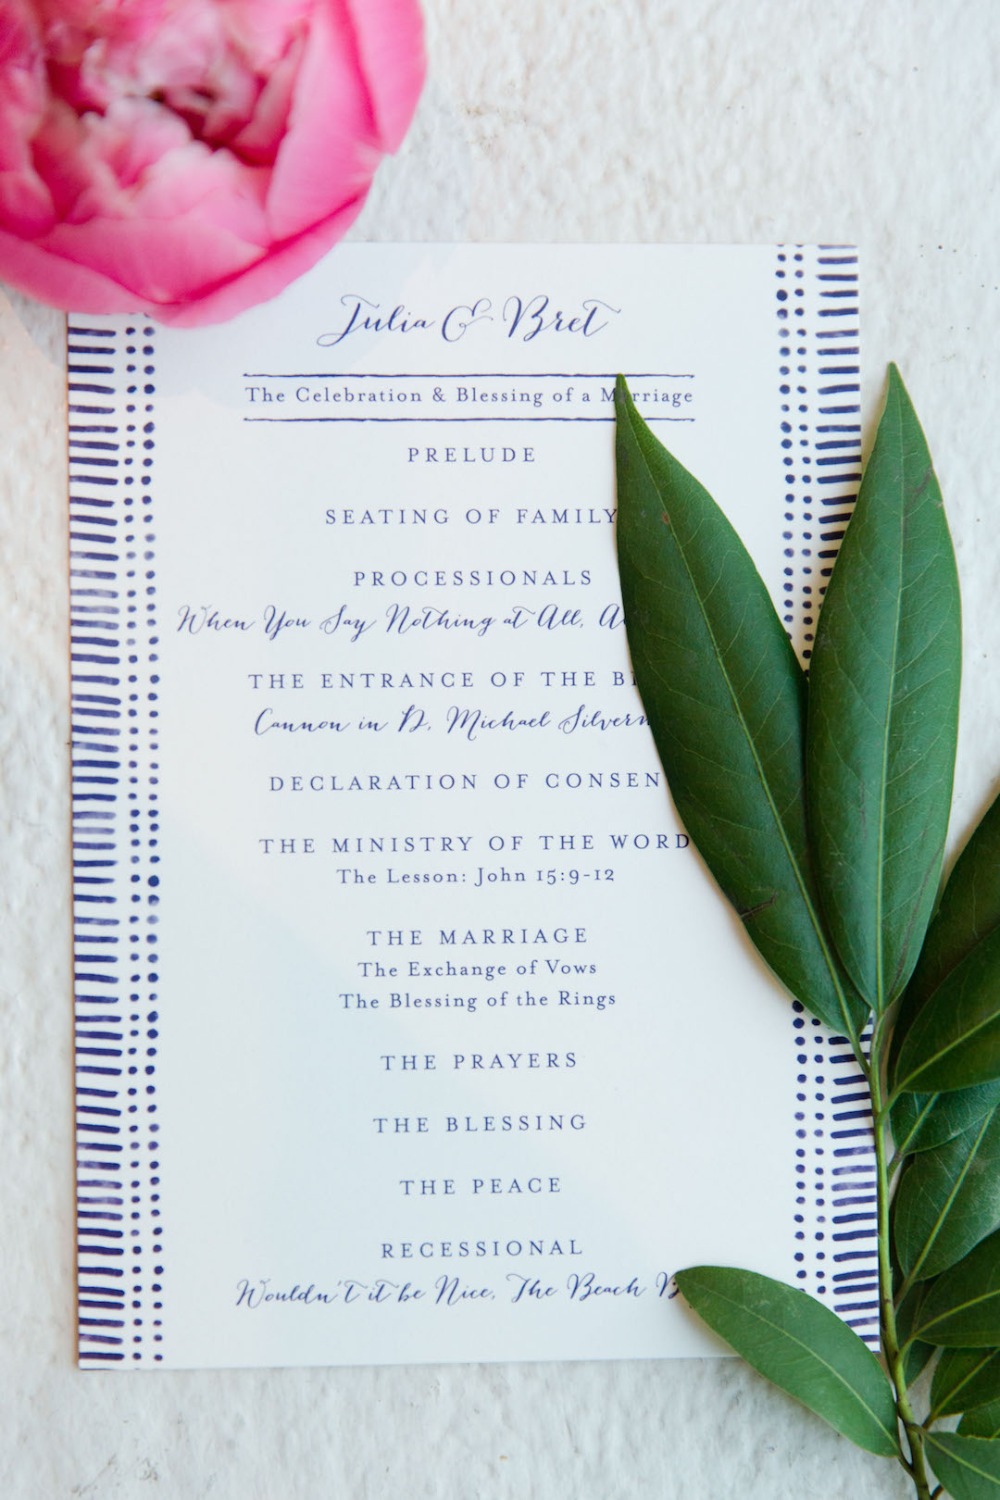 Julia & Bret
The Celebration & Blessing of a Marriage
PRELUDE
SEATING OF FAMILY
PROCESSIONALS
When You Say Nothing at All,
THE ENTRANCE OF THE
Cannon in D, Michael
DECLARATION OF
THE MINISTRY OF THE WORD
The Lesson: John 15:9-12
THE MARRIAGE
The Exchange of Vows
The Blessing of the Rings
THE PRAYERS
THE BLESSING
THE PEACE
RECESSIONAL
Wouldn't it be Nice, The Beach